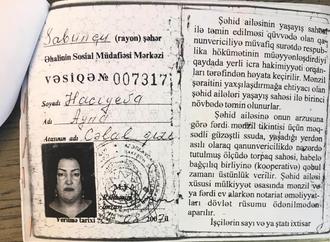 Sabunçu (rayon) şəhər
Əhalinin Sosial Müdafiəsi Mərkəzi
VƏSİQƏ № 007317
Soyadı Hacıyeva
Adı Ayna
Atasının adı Cəlal qızı
Verilmə tarixi 2007
Şəhid ailəsinin yaşayış sahəsi
ilə təmin edilməsi qüvvədə olan qa-
nunvericiliyə müvafiq surətdə respub-
lika hökümətinin müəyyənləşdirdiyi
qaydada yerli icra hakimiyyəti orqan-
ları tərəfindən həyata keçirilir. Mənzil
şəraitini yaxşılaşdırmağa ehtiyacı olan
şəhid ailələri yaşayış sahəsi ilə birinci
növbədə təmin olunurlar.
Şəhid ailəsinə onun arzusuna
görə fərdi mənzil tikintisi üçün məq-
sədli güzəştli ssuda, yaşadığı ərazidən
asılı olaraq qanunvericilikdə nəzərdə
tutulmuş ölçüdə torpaq sahəsi, habelə
bağçılıq birliyinə (kooperativə) qəbul
zamanı üstünlük verilir. Şəhid ailəsi
xüsusi mülkiyyət əsasında mənzil və
ya fərdi ev alarkən notariat əməliyyat-
ları dövlət rüsumu ödənilmədən
aparılır.
İşçilərin sayı və ya ştatı ixtisar